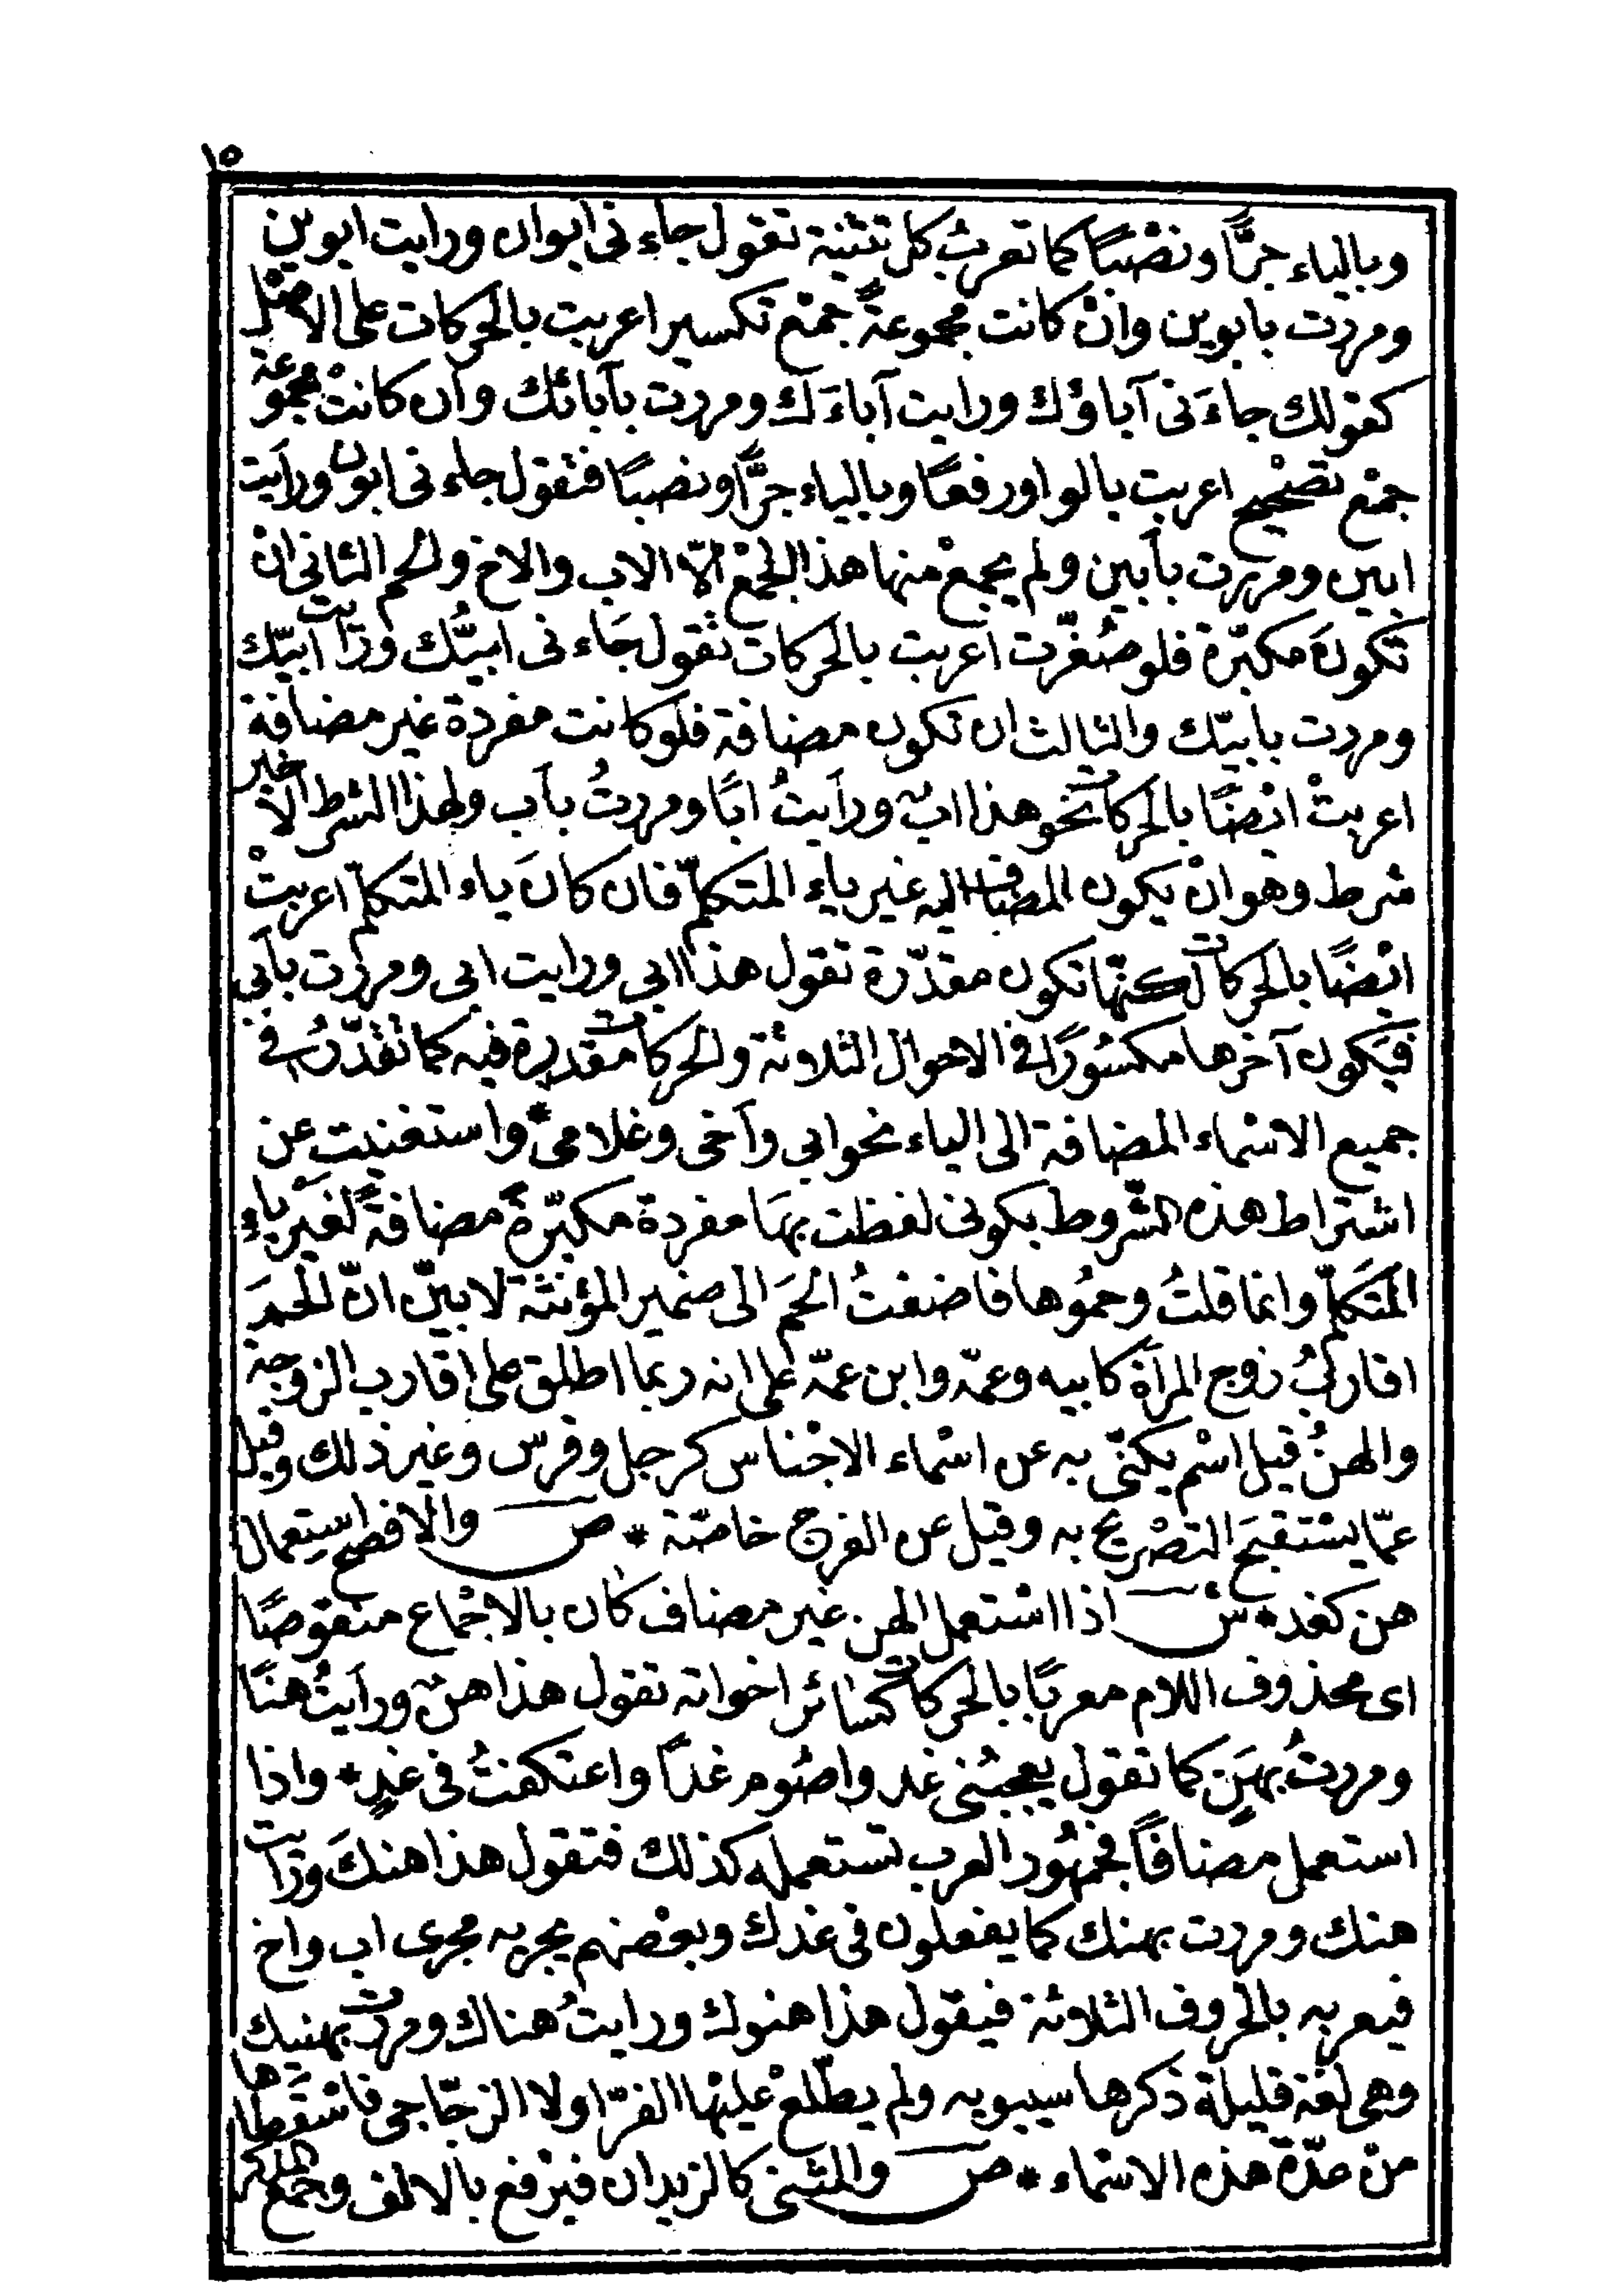 ١٥
وبالياء جرًّا ونصْبًا كما تعربُ كل تثنية تقول جاء نى ابوان ورايت ابوين
ومررت بابوين وانْ كانت مجموعةً جمْع تكسير اعربت بالحركات على الاصْل
كقولك جاءَنى آباؤك ورايت آباءَك ومررت بآبائك وان كانتْ مجموعة
جمْع تصْحيح اعربت بالواو رفعًا وبالياء جرًّا ونصبًا فتقول جاء نى ابون ورأيت
ابين ومررت بأبين ولم يجمعْ منها هذا الجمْع الّا الاب والاخ والحم الثانى انْ
تكونَ مكبّرة فلو صُغّرت اعربت بالحركات تقول جَاء نى ابيُّك ورأيت ابيّك
ومررت بابيّك والثالث ان تكون مضافة فلو كانت مفردة غير مضافة
اعربتْ ايْضًا بالحركات نحو هذا ابٌ ورأيتُ ابًا ومررتُ بأب ولهذا الشرط الاخير
شرط وهو انْ يكون المضاف اليه غير ياء المتكلّم فان كانَ ياء المتكلّم اعربتْ
ايْضًا بالحركات لكنّها تكون مقدّرة تقول هذا ابى ورايت ابى ومررت بأبى
فيَكون آخرها مكسُورًا فى الاحوال الثلاثة والحركات مقدرة فيه كما تقدّرُ فى
جميع الاسْماء المضافة الى الياء نحو ابى وأخى وغلامى * واستغنيت عن
اشتراط هذه الشّروط بكونى لفظت بهَا مفردة مكبّرةً مضافةً لغَيْر ياء
المتَكلّم وانما قلتُ وحمُوها فاضفتُ الحمَ الى ضمير المؤنثة لابيّن انّ الحمَ
اقاربُ زوج المرأة كابيه وعمّه وابن عمّه على انه ربما اطلق على اقارب الزوجة
والهنُ قيل اسْم يكنّى به عن اسْماء الاجْناس كرجل وفرس وغير ذلك وقيل
عمّا يسْتقبَح التصْريح به وقيل عن الفرج خاصّة * ص والافصح استعمال
هن كغد * ش اذا اسْتعمل الهن غير مضاف كان بالاجْماع منقوصًا
اى محذوف اللام معربًا بالحركات كسائر اخواته تقول هذا هنٌ ورأيتُ هنًا
ومررتُ بهَنٍ كما تقول يعجبُنى غد واصُوم غدًا واعتكفتُ فى غدٍ * واذا
استعمل مضافًا فجمْهُور العرب تستعمله كذلك فتقول هذا هنكَ ورأيت
هنك ومررت بهنك كما يفعلون فى غدك وبعْضهم يجريه مجرى اب واخ
فيعربه بالحروف الثلاثة فيقول هذا هنوك ورايتُ هناك ومررت بهنيك
وهى لغة قليلة ذكرها سيبويه ولم يطّلعْ عليْها الفرّا ولا الزجّاجى فاسْقطاها
منْ عدّة هذه الاسْماء * ص والمثنى كالزيدان فيرْفع بالالف وجمْع المذكر